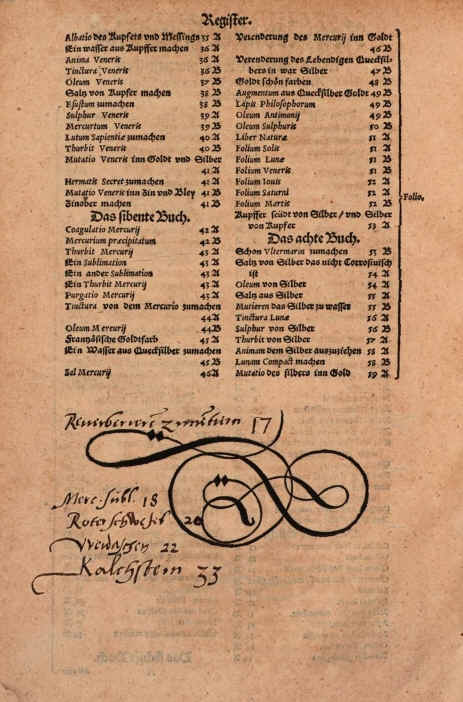 Register.
Albatio des Kupfers vnd Messings 35 A
Ein wasser aus Kupffer machen 36 A
Anima Veneris 36 A
Tinctura Veneris 36 B
Oleum Veneris 37 B
Saltz von Kupfer machen 38 B
Esustum zumachen 38 B
Sulphur Veneris 39 A
Mercurium Veneris 39 B
Lutum Sapientiæ zumachen 40 A
Thurbit Veneris 40 B
Mutatio Veneris inn Goldt vnd Silber
41 A
Hermetis Secret zumachen 41 A
Mutatio Veneris inn Zin vnd Bley 41 B
Zinober machen 41 B
Das sibente Buch.
Coagulatio Mercurij 42 A
Mercurium præcipitatum 42 B
Thurbit Mercurij 43 A
Ein Sublimation 43 A
Ein ander Sublimation 43 A
Ein Thurbit Mercurij 43 A
Purgatio Mercurij 43 A
Tinctura von dem Mercurio zumachen
44 A
Oleum Mercurij 44 B
Frantzösische Goldtfarb 45 A
Ein Wasser aus Quecksilber zumachen
45 B
Sal Mercurij 46 A
Verenderung des Mercurij inn Goldt
46 B
Verenderung des Lebendigen Quecksil-
bers in war Silber 47 B
Goldt schön farben 48 B
Augmentum aus Quecksilber Goldt 49 B
Lapis Philosophorum 49 B
Oleum Antimonij 49 B
Oleum Sulphuris 50 B
Liber Naturæ 51 A
Folium Solis 51 A
Folium Lunæ 51 B
Folium Veneris 51 B
Folium Iouis 52 A
Folium Saturni 52 A
Folium Martis 52 B
Kupffer seudt von Silber / vnd Silber
von Kupfer 53 A
Folio,
Das achte Buch.
Schön Vltermarin zumachen 53 B
Saltz von Silber das nicht Corrosiuisch
ist 54 A
Oleum von Silber 54 A
Saltz aus Silber 55 A
Mutieren das Silber zu wasser 55 B
Tinctura Lunæ 56 A
Sulphur von Silber 56 B
Thurbit von Silber 57 A
Animam dem Silber auszuziehen 58 A
Lunam Compact machen 58 B
Mutatio des silbers inn Gold 59 A
17
Merc. subl. 18
Roter schwefel 20
Weidaschen 22
Kalchstein 33